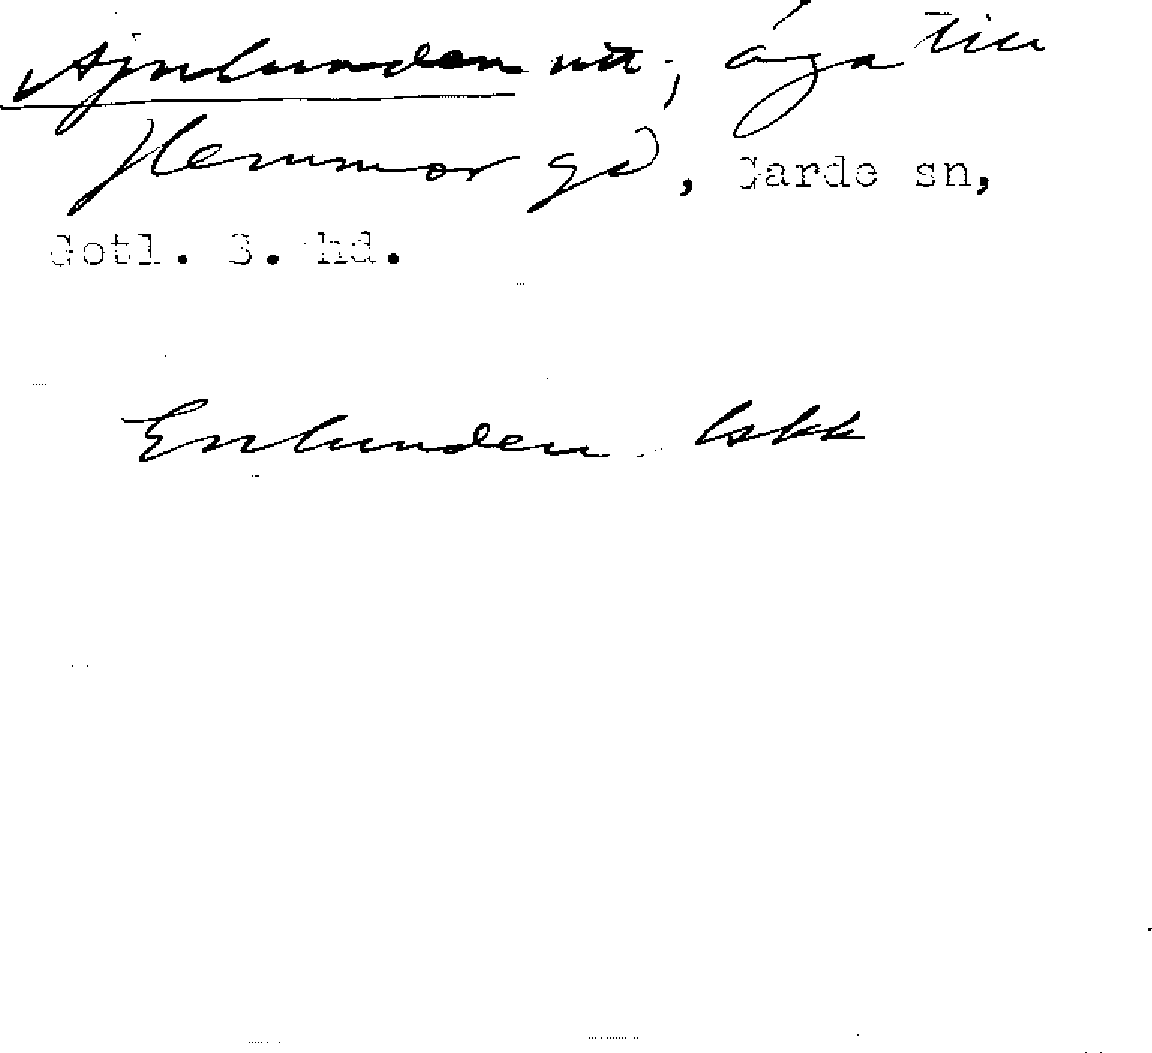 Ajnlunden utt., äga till
Hemmor gd, Garde sn,
Gotl. S. hd.
Enlunden lskk